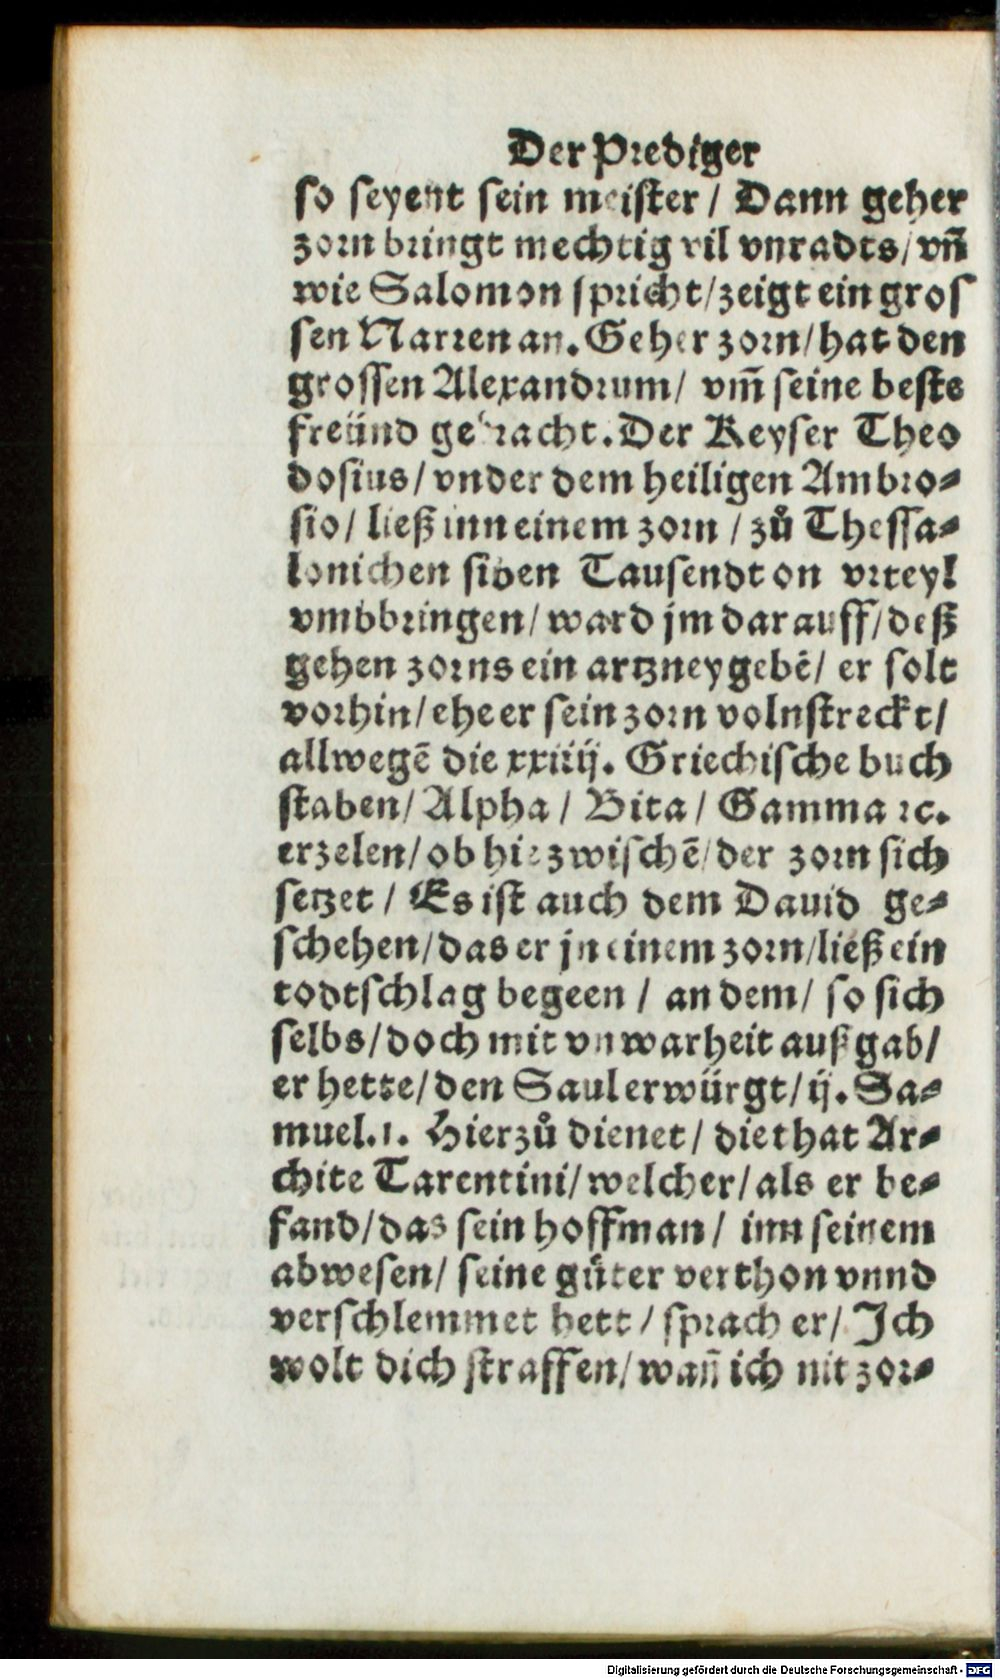 Der Prediger
so seyent sein meister / Dann geher
zorn bringt mechtig vil vnradts / vn̄
wie Salomon spricht / zeigt ein gros
sen Narren an. Geher zorn / hat den
grossen Alexandrum / vm̄ seine beste
freünd gebracht. Der Keyser Theo
dosius / vnder dem heiligen Ambro⸗
sio / ließ inn einem zorn / zů Thessa⸗
lonichen siben Tausendt on vrteyl
vmbbringen / ward jm darauff / deß
gehen zorns ein artzney gebē / er solt
vorhin / ehe er sein zorn volnstreckt /
allwegē die xxiiij. Griechische buch
staben / Alpha / Bita / Gamma ꝛc.
erzelen / ob hiezwischē / der zorn sich
setzet / Es ist auch dem Dauid ge⸗
schehen / das er jn einem zorn / ließ ein
todtschlag begeen / an dem / so sich
selbs / doch mit vnwarheit auß gab /
er hette / den Saul erwürgt / ij. Sa⸗
muel. 1. Hierzů dienet / die that Ar⸗
chite Tarentini / welcher / als er be⸗
fand / das sein hoffman / inn seinem
abwesen / seine gůter verthon vnnd
verschlemmet hett / sprach er / Ich
wolt dich straffen / wan̄ ich nit zor⸗
Digitalisierung gefördert durch die Deutsche Forschungsgemeinschaft - DFG